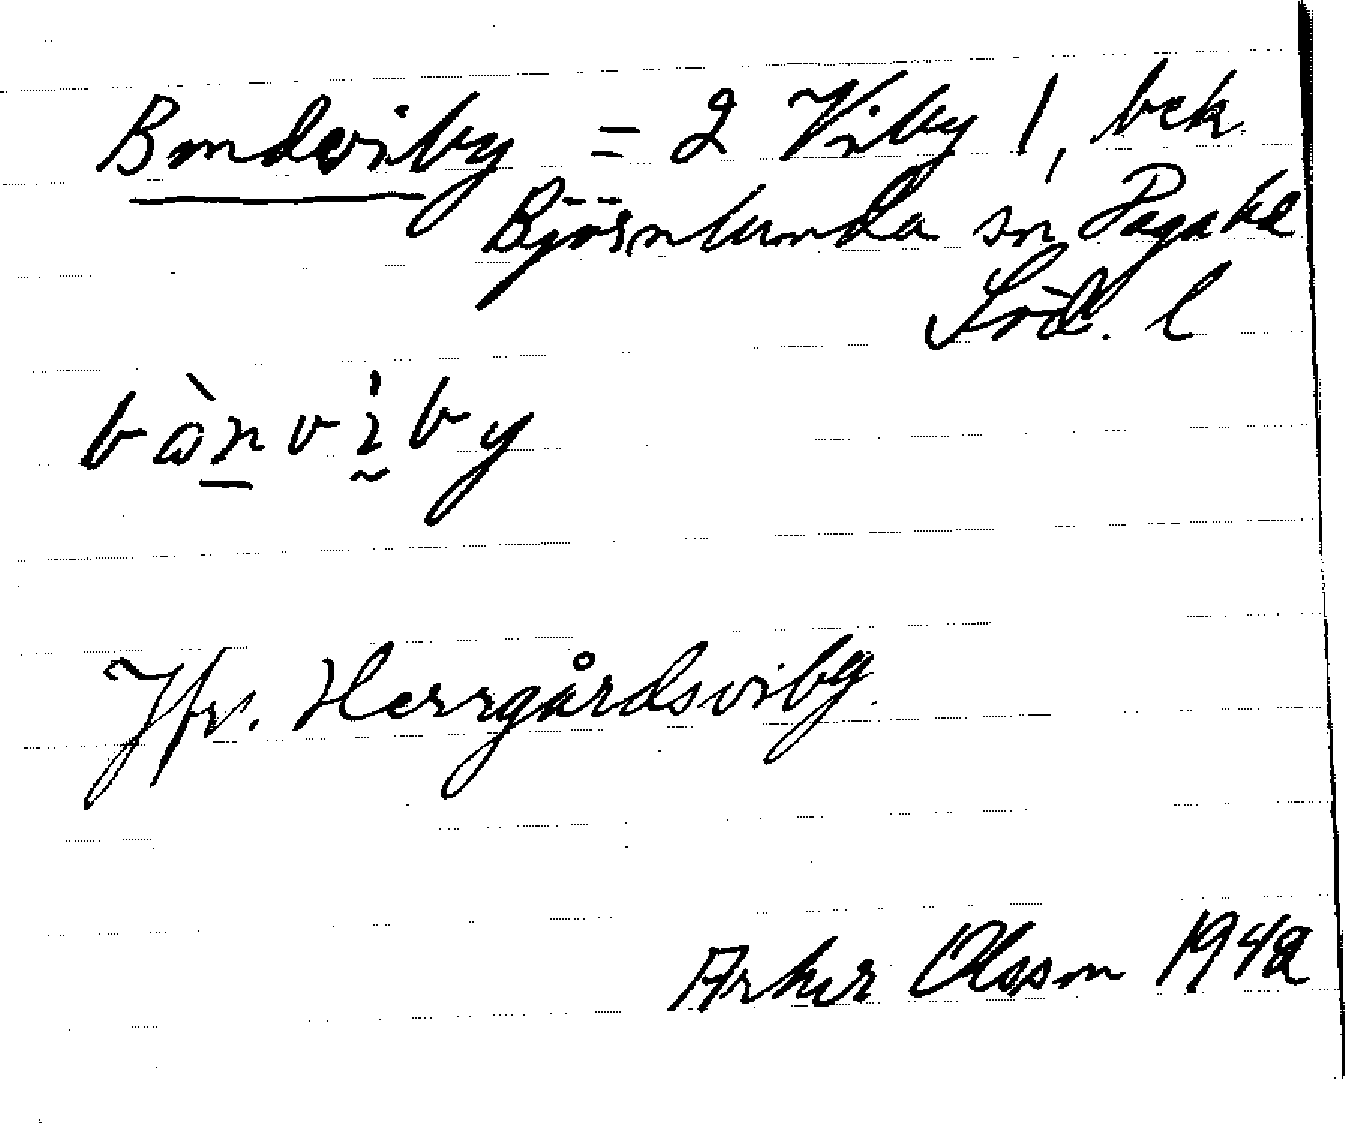 Bondeviby = 2 Viby 1, bek
Björnlunda sn Daga hd
Söd. l
bònvìby
Jfr. Herrgårdsviby.
Olsson 1942